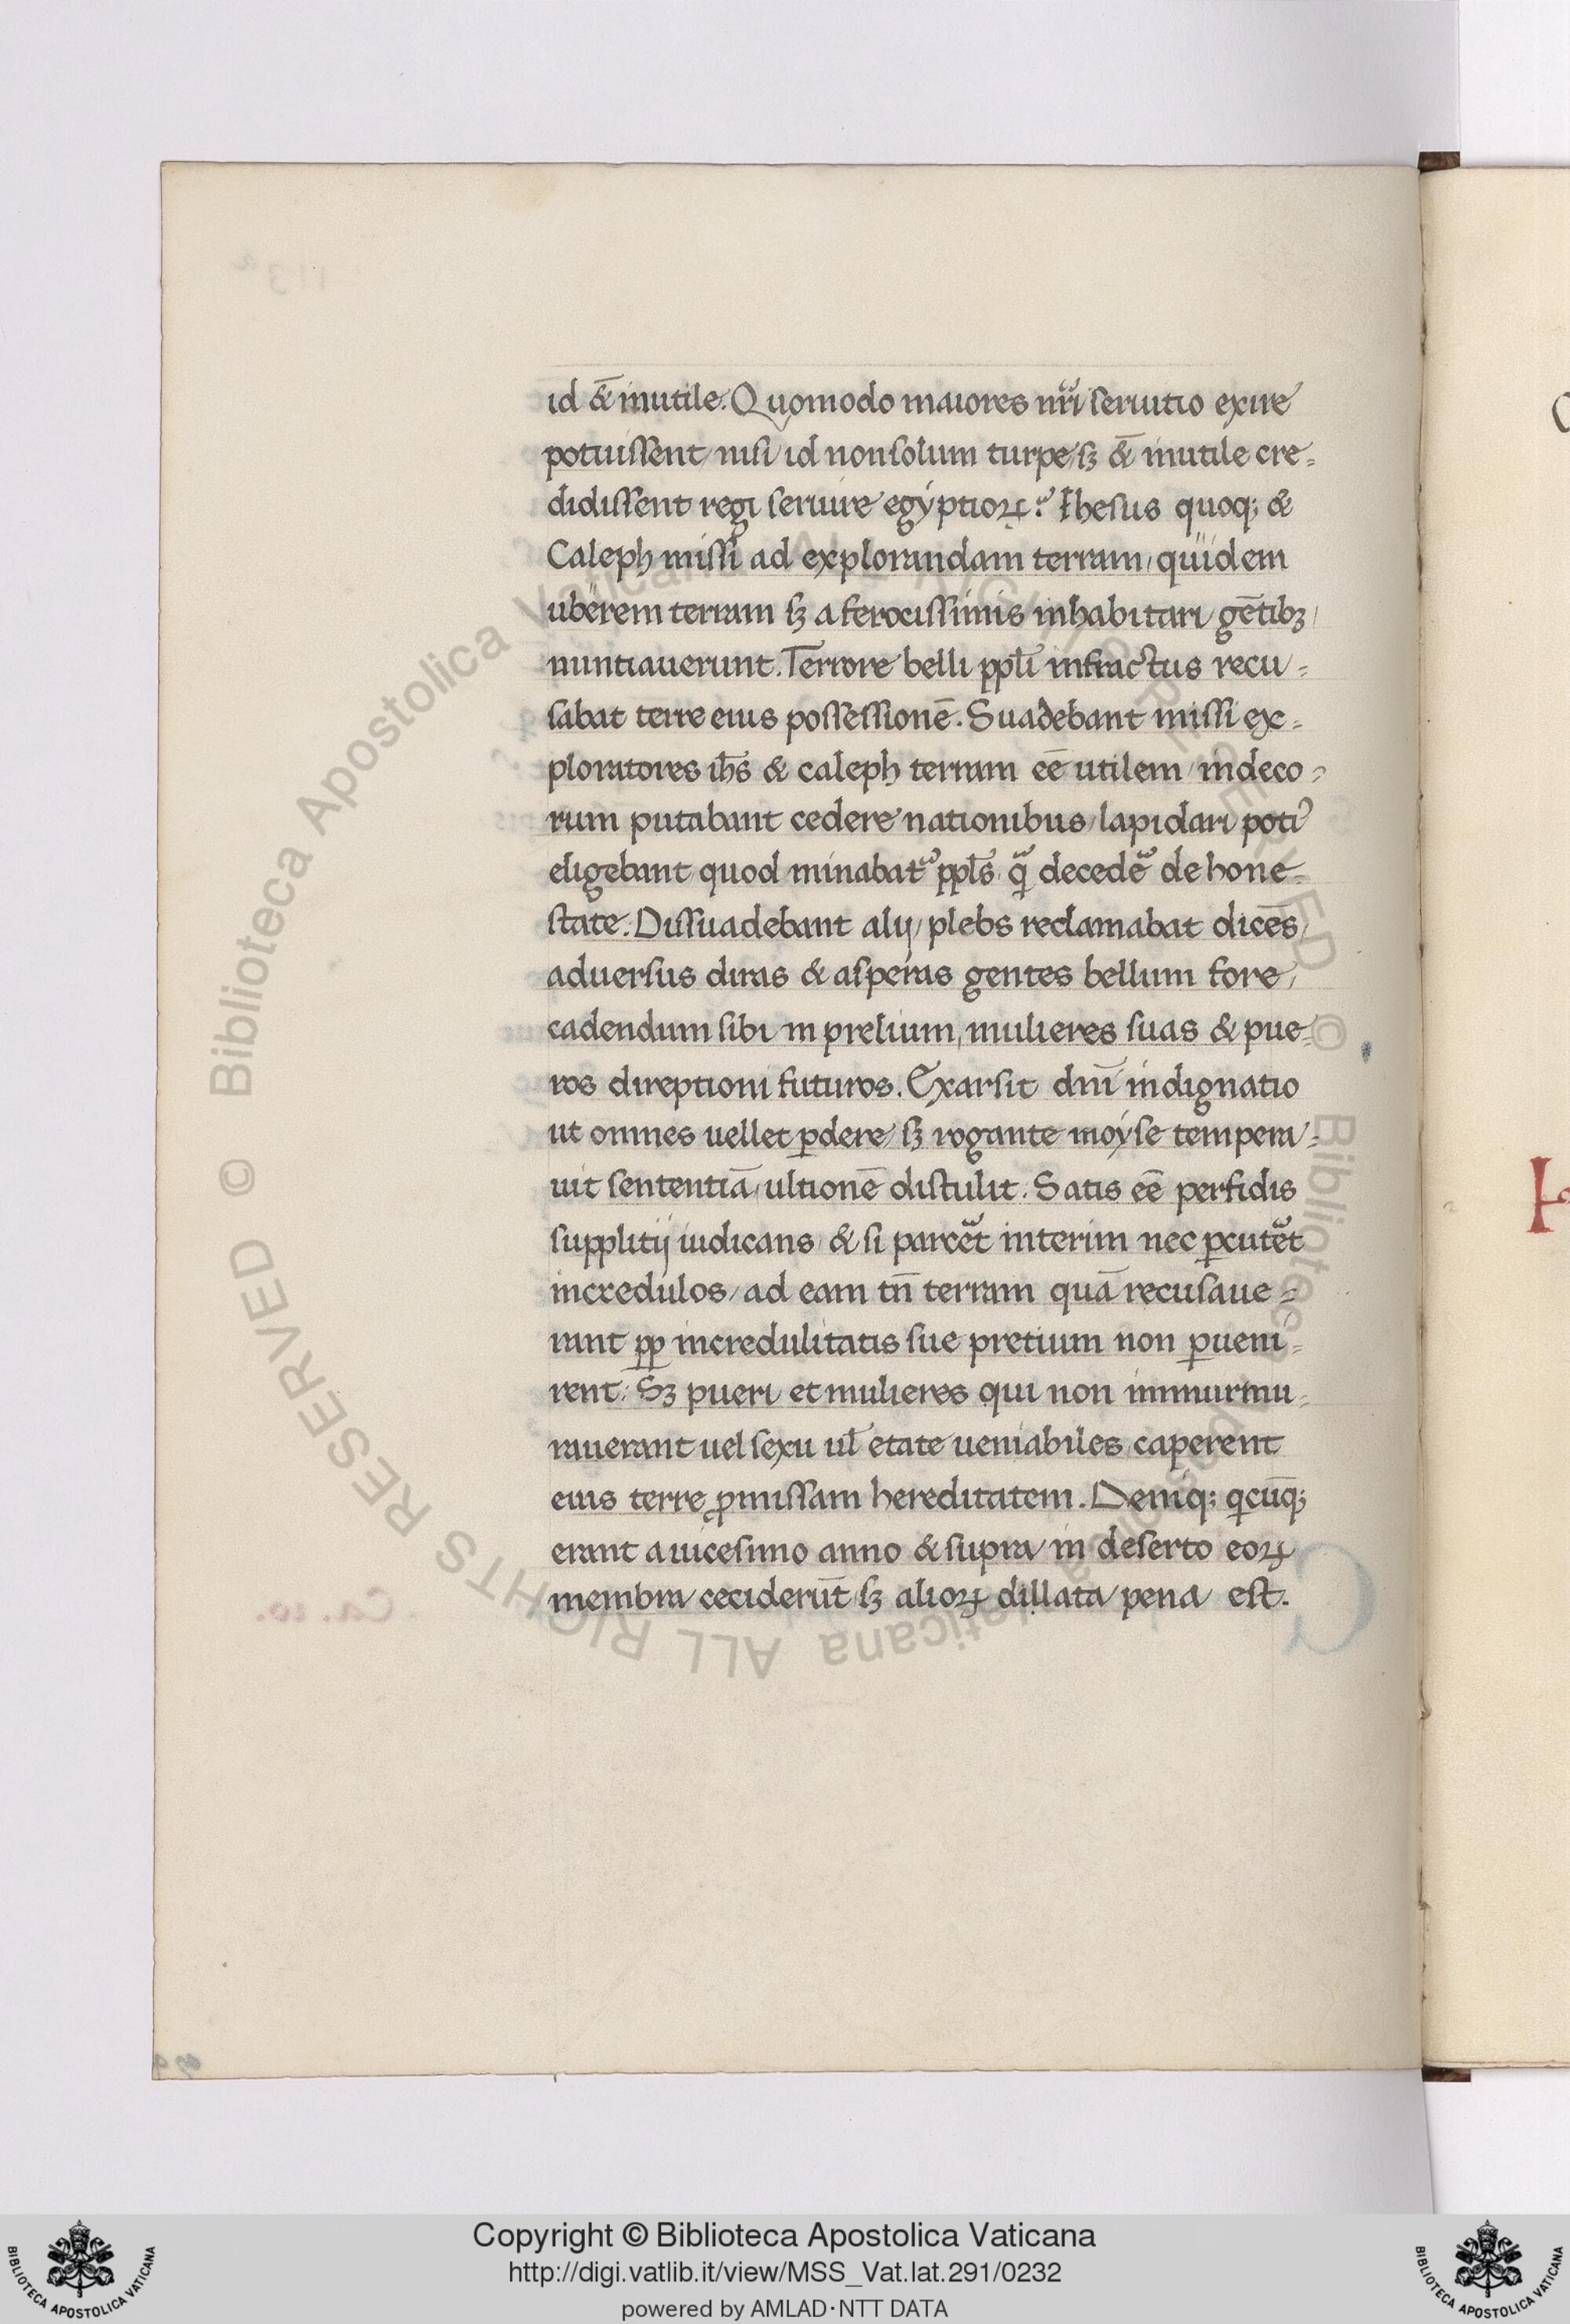 id & inutile. Quomodo maiores nr̄i seruitio exire
potuissent nisi id non solum turpe sꝫ &̄ inutile cre=
didissent regi seruire egẏptioꝝ? Ihesus quoq; &
Caleph missi ad explorandam terram, quidem
uberem terram sꝫ a ferocissimis inhabitari gētibꝫ
nuntiauerunt. Terrore belli ppl̄i infractus recu=
sabat terre eius possessionē. Suadebant missi ex=
ploratores ih̄s & caleph terram eē utilem indeco=
rum putabant cedere nationibus lapidari poti᾽
eligebant quod minabat᷑ ppl̄s q̄ decedē de hone=
state. Dissuadebant alij, plebs reclamabat dicēs
aduersus diras & asperas gentes bellum fore,
cadendum sibi in prelium, mulieres suas & pue=
ros direptioni futuros. Exarsit dn̄i indignatio
ut omnes uellet ꝑdere sꝫ rogante moẏse tempera=
uit sententiā, ultionē distulit. Satis eē perfidis
supplitij iudicans & si parcēt interim nec ꝑcutēt
incredulos, ad eam tn̄ terram quā recusaue=
rant ꝓp incredulitatis sue pretium non ꝑueni=
rent. Sꝫ pueri et mulieres qui non inmurmu=
rauerant uel sexu ul̄ etate ueniabiles caperent
eius terre ꝓmissam hereditatem. Deniq; q̄cūq;
erant a uicesimo anno & supra in deserto eoꝝ
membra ceciderūt sꝫ alioꝝ dillata pena est.
Copyright © Biblioteca Apostolica Vaticana
http://digi.vatlib.it/view/MSS_Vat.lat.291/0232
powered by AMLAD·NTT DATA
© Biblioteca Apostolica Vaticana ALL RIGHTS RESERVED
BIBLIOTECA APOSTOLICA VATICANA
BIBLIOTECA APOSTOLICA VATICANA